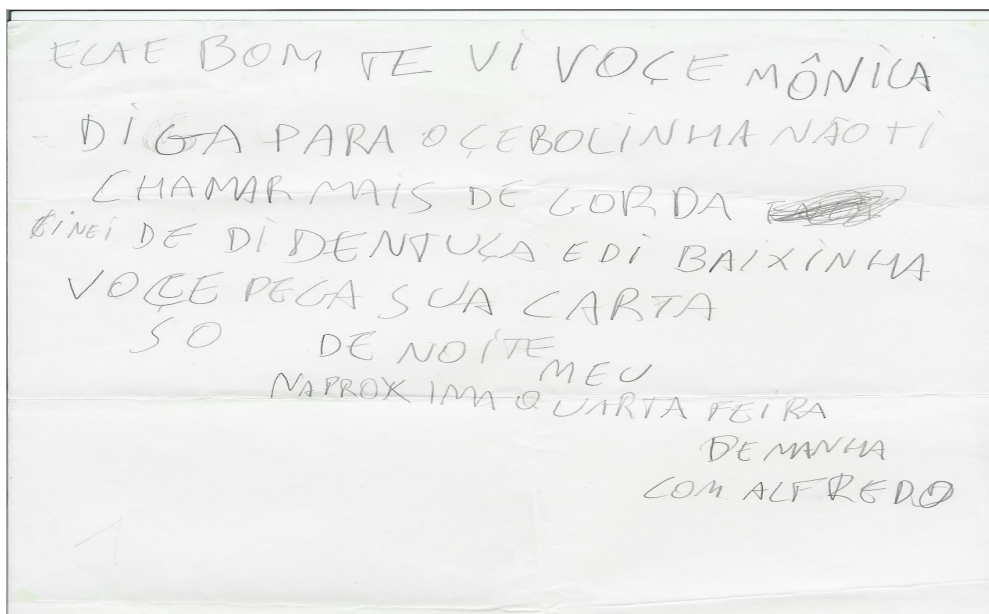 ELAE BOM TE VI VOÇE MÔNICA
DIGA PARA O ÇEBOLINHA NÃO TI
CHAMAR MAIS DE GORDA
ĢINEI DE DI DENTUÇA E DI BAIXINHA
VOÇE PEGA SUA CARTA
SO DE NOITE
MEU
NAPROXIMA QUARTA FEIRA
DEMANHA
COM ALFREDO